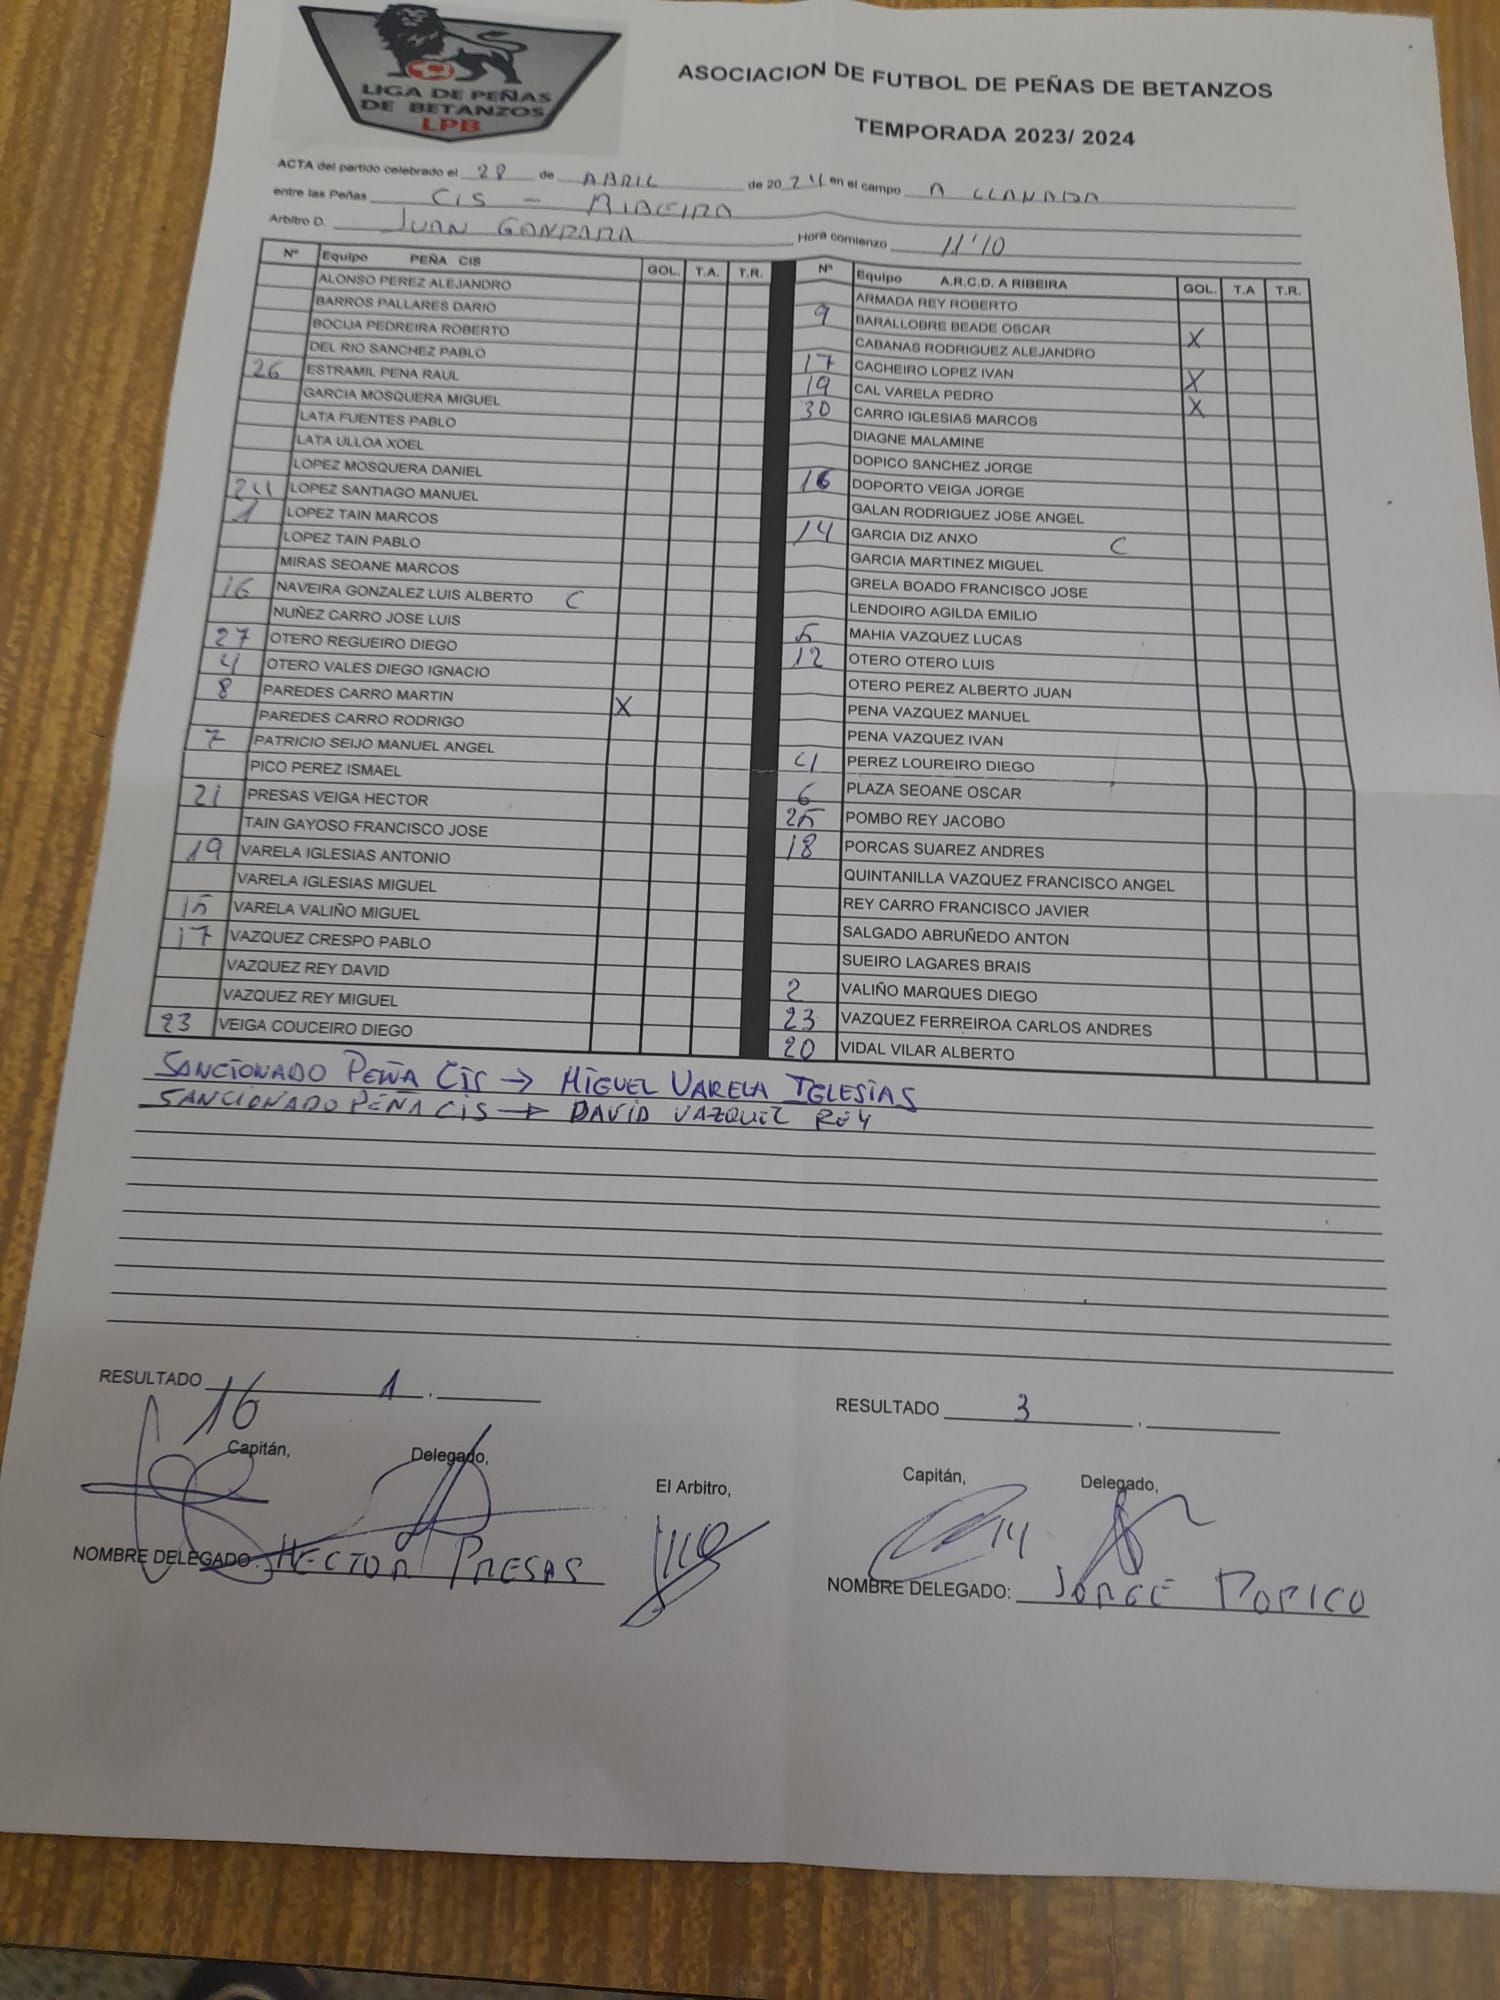 LIGA DE PEÑAS
DE BETANZOS
LPB
ASOCIACION DE FUTBOL DE PEÑAS DE BETANZOS
TEMPORADA 2023/ 2024
ACTA del partido celebrado el 28 de ABRIL de 2024 en el campo A LLANADA
entre las Peñas CIS - RIBEIRA
Arbitro D. JUAN GANDARA Hora comienzo 11'10
Nº Equipo PEÑA CIS GOL. T.A. T.R.
ALONSO PEREZ ALEJANDRO
BARROS PALLARES DARIO
BOCIJA PEDREIRA ROBERTO
DEL RIO SANCHEZ PABLO
26 ESTRAMIL PENA RAUL
GARCIA MOSQUERA MIGUEL
LATA FUENTES PABLO
LATA ULLOA XOEL
LOPEZ MOSQUERA DANIEL
24 LOPEZ SANTIAGO MANUEL
1 LOPEZ TAIN MARCOS
LOPEZ TAIN PABLO
MIRAS SEOANE MARCOS
16 NAVEIRA GONZALEZ LUIS ALBERTO C
NUÑEZ CARRO JOSE LUIS
27 OTERO REGUEIRO DIEGO
4 OTERO VALES DIEGO IGNACIO
8 PAREDES CARRO MARTIN X
PAREDES CARRO RODRIGO
7 PATRICIO SEIJO MANUEL ANGEL
PICO PEREZ ISMAEL
21 PRESAS VEIGA HECTOR
TAIN GAYOSO FRANCISCO JOSE
19 VARELA IGLESIAS ANTONIO
VARELA IGLESIAS MIGUEL
15 VARELA VALIÑO MIGUEL
17 VAZQUEZ CRESPO PABLO
VAZQUEZ REY DAVID
VAZQUEZ REY MIGUEL
23 VEIGA COUCEIRO DIEGO
Nº Equipo A.R.C.D. A RIBEIRA GOL. T.A T.R.
ARMADA REY ROBERTO
9 BARALLOBRE BEADE OSCAR X
CABANAS RODRIGUEZ ALEJANDRO
17 CACHEIRO LOPEZ IVAN X
19 CAL VARELA PEDRO X
30 CARRO IGLESIAS MARCOS
DIAGNE MALAMINE
DOPICO SANCHEZ JORGE
16 DOPORTO VEIGA JORGE
GALAN RODRIGUEZ JOSE ANGEL
14 GARCIA DIZ ANXO C
GARCIA MARTINEZ MIGUEL
GRELA BOADO FRANCISCO JOSE
LENDOIRO AGILDA EMILIO
5 MAHIA VAZQUEZ LUCAS
12 OTERO OTERO LUIS
OTERO PEREZ ALBERTO JUAN
PENA VAZQUEZ MANUEL
PENA VAZQUEZ IVAN
PEREZ LOUREIRO DIEGO
6 PLAZA SEOANE OSCAR
25 POMBO REY JACOBO
18 PORCAS SUAREZ ANDRES
QUINTANILLA VAZQUEZ FRANCISCO ANGEL
REY CARRO FRANCISCO JAVIER
SALGADO ABRUÑEDO ANTON
SUEIRO LAGARES BRAIS
2 VALIÑO MARQUES DIEGO
23 VAZQUEZ FERREIROA CARLOS ANDRES
20 VIDAL VILAR ALBERTO
SANCIONADO PEÑA CIS → MIGUEL VARELA IGLESIAS
SANCIONADO PEÑA CIS → DAVID VAZQUEZ REY
RESULTADO 1 .
RESULTADO 3 .
16
Capitán, Delegado,
El Arbitro,
Capitán, Delegado,
14
NOMBRE DELEGADO: HECTOR PRESAS
NOMBRE DELEGADO: JORGE DOPICO